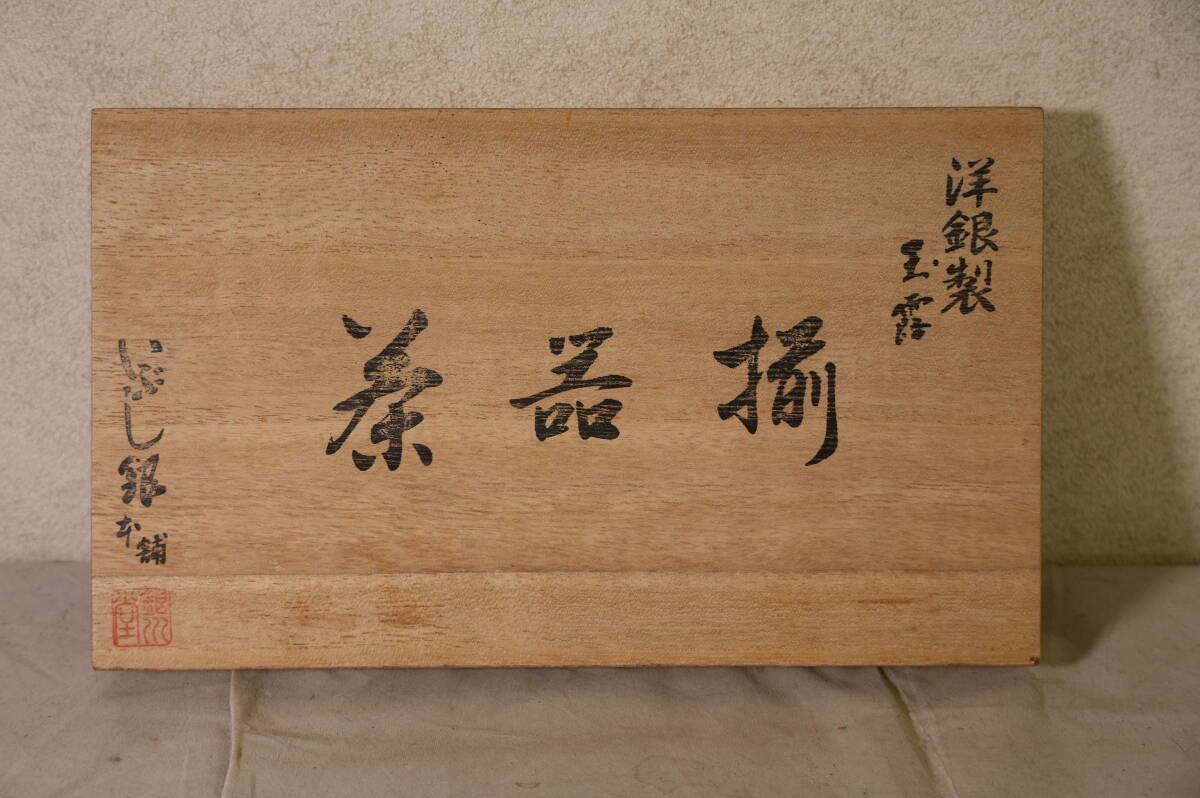 洋銀製
玉露
茶器揃
いぶし銀本舗